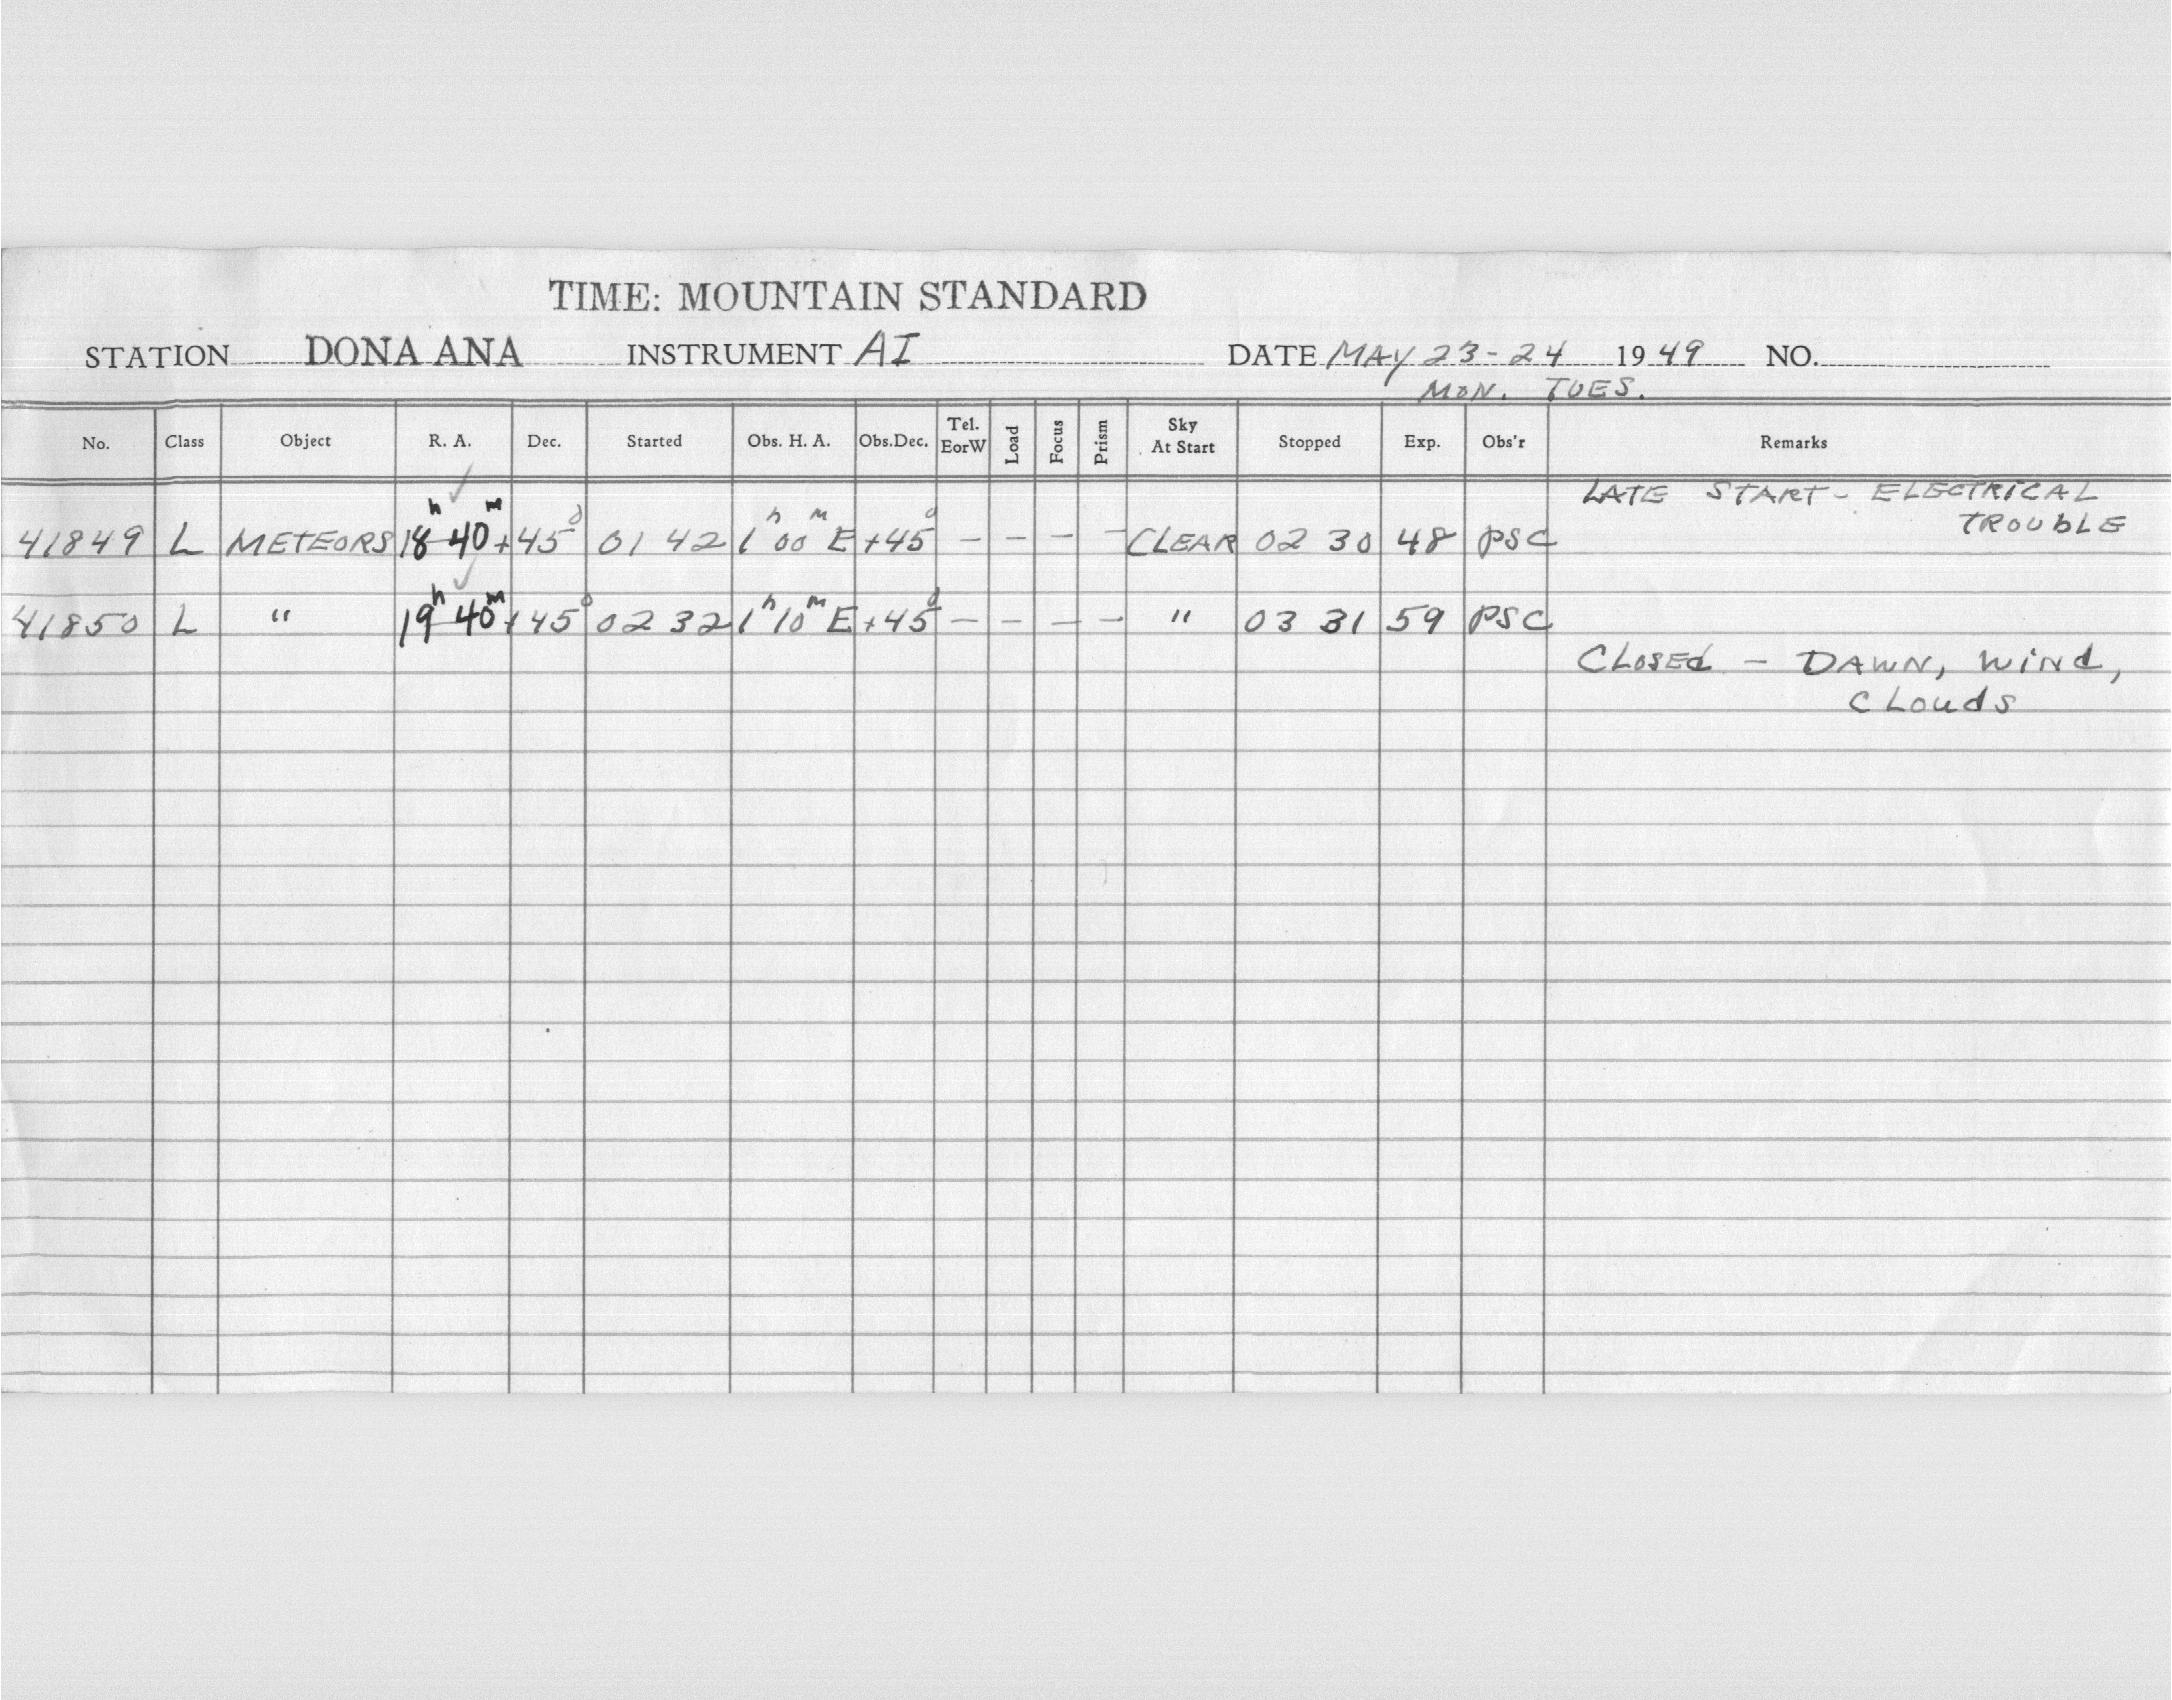 TIME: MOUNTAIN STANDARD
STATION DONA ANA INSTRUMENT AI DATE MAY 23-24 1949 NO.
MON. TUES.
No. Class Object R. A. Dec. Started Obs. H. A. Obs.Dec. Tel. EorW Load Focus Prism Sky At Start Stopped Exp. Obs'r Remarks
LATE START - ELECTRICAL
TROUBLE
41849 L METEORS 18h 40m +45° 01 42 1h 00m E +45° — — — — CLEAR 02 30 48 PSC
41850 L " 19h 40m +45° 02 32 1h 10m E +45° — — — — " 03 31 59 PSC
CLOSEd — DAWN, WiNd,
CLOudS